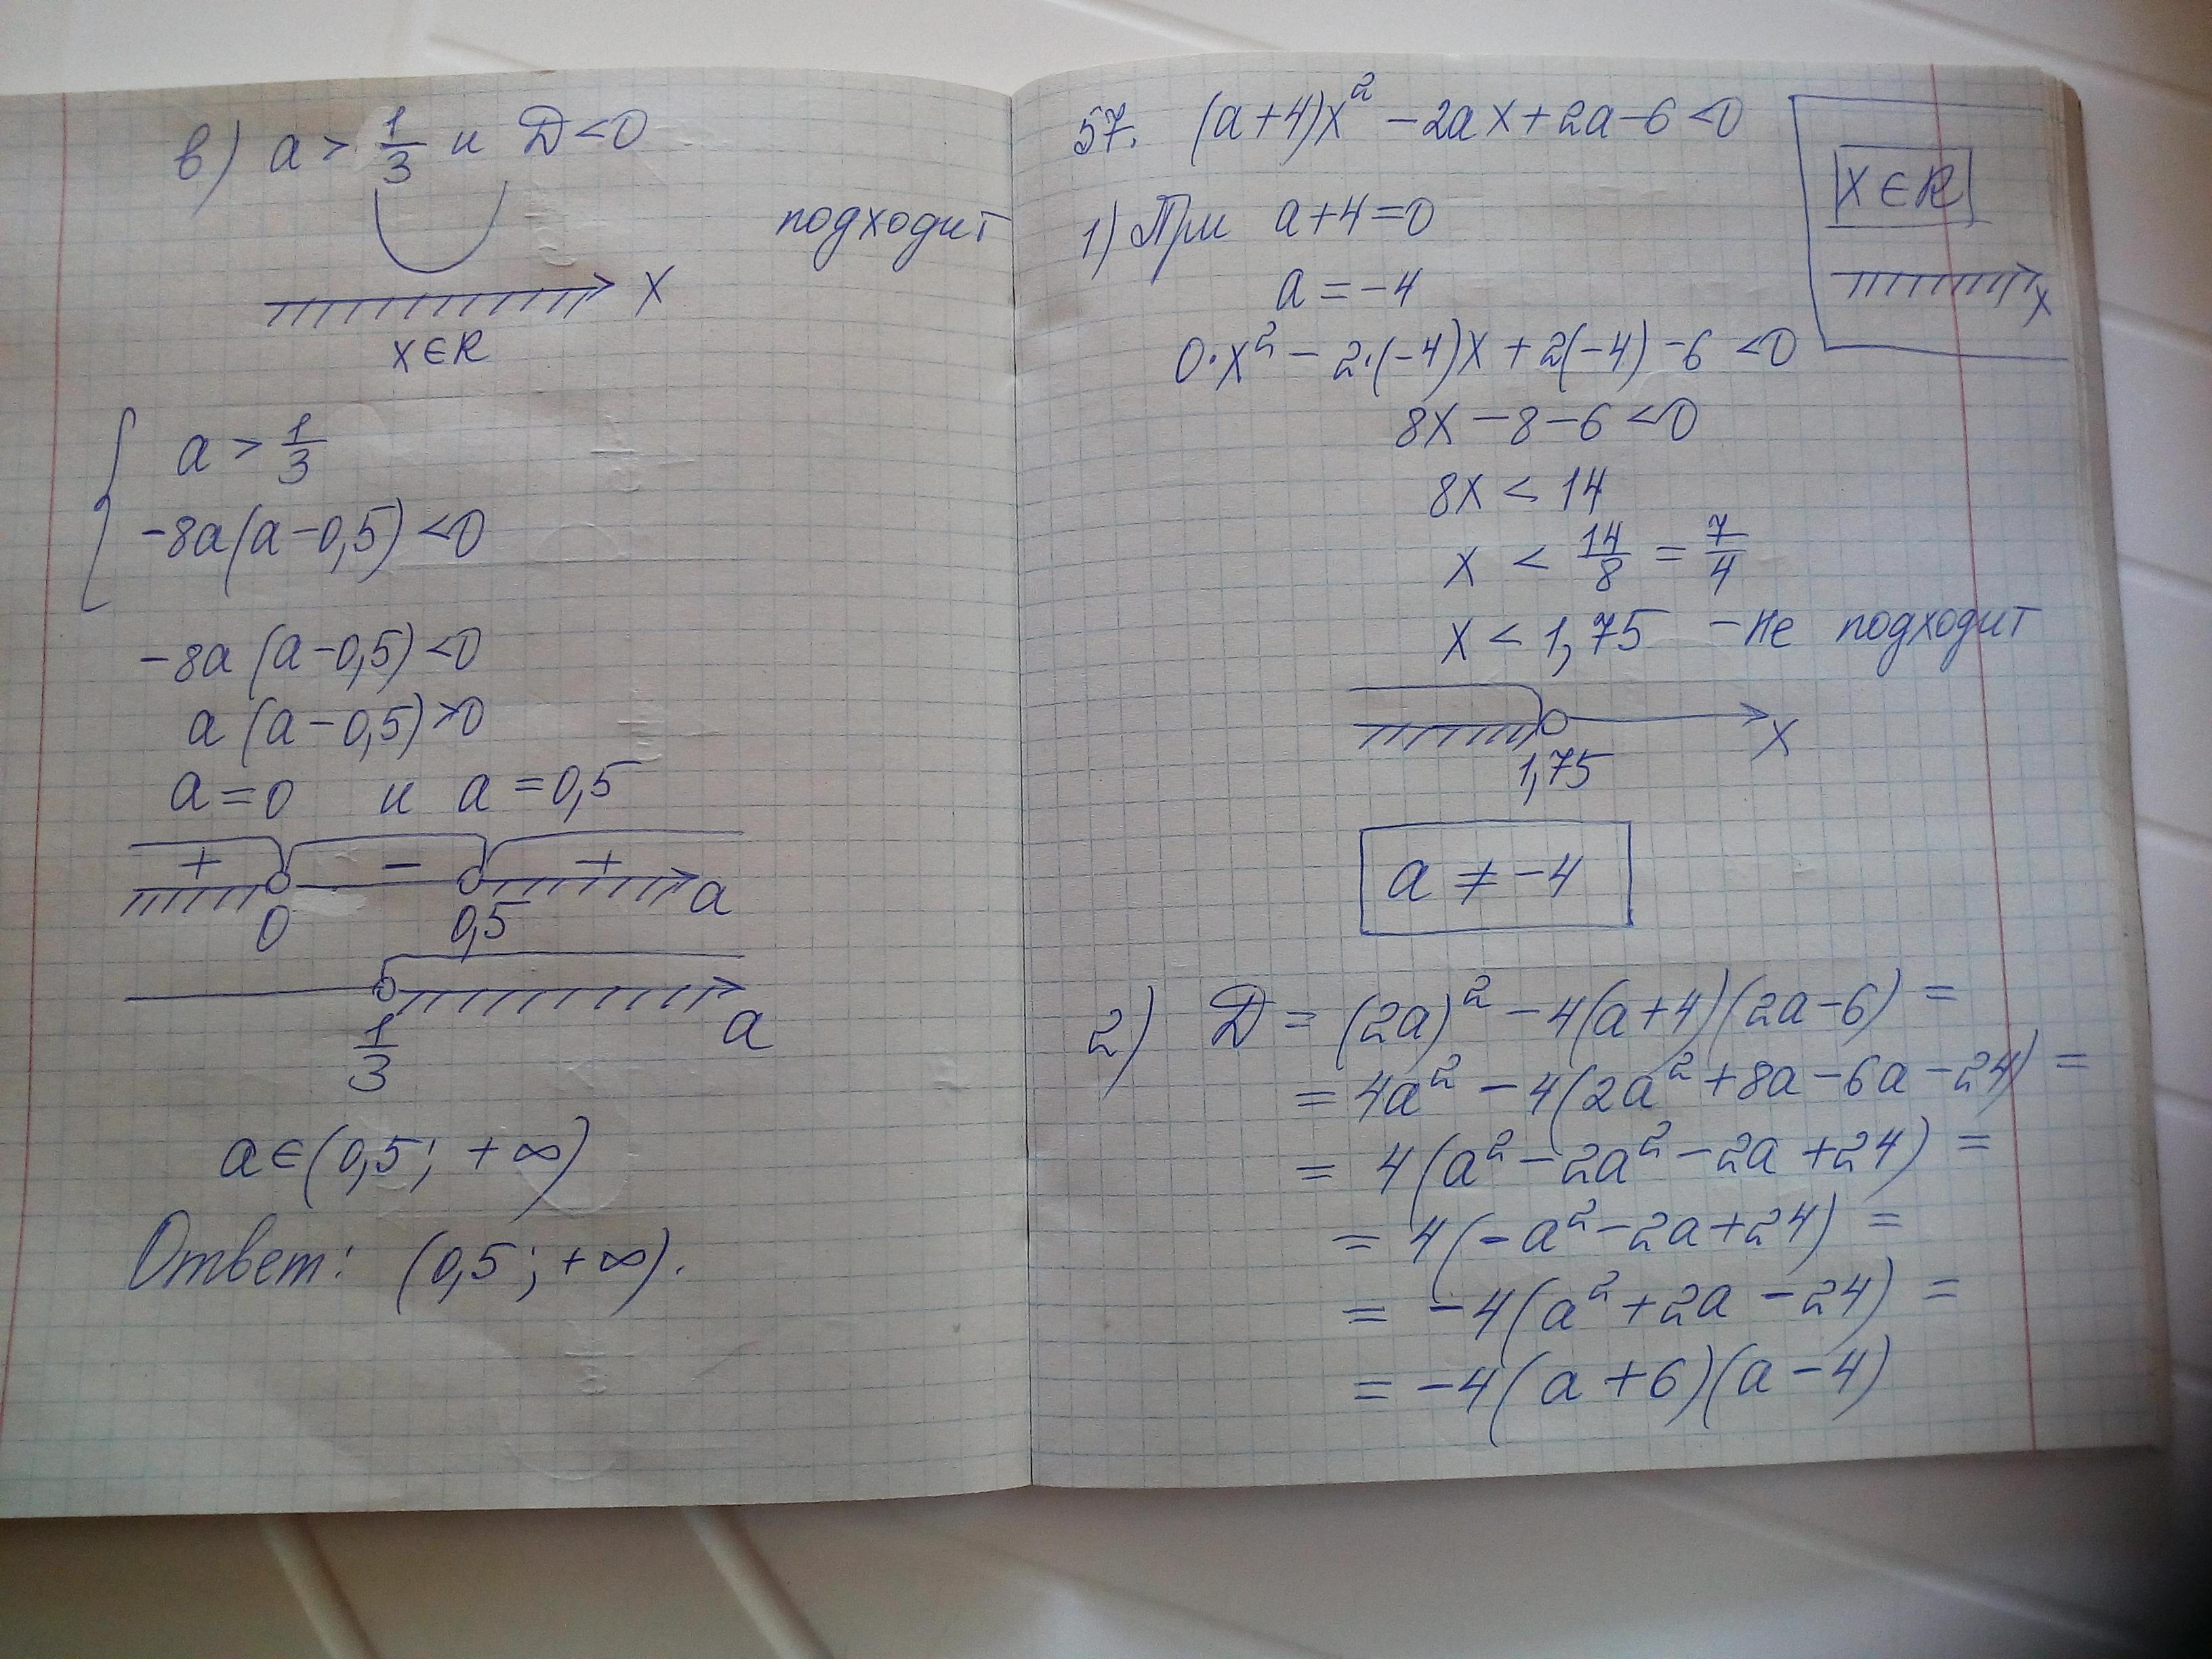 в) a > 1/3 и D < 0
подходит
x
x ∈ R
a > 1/3
-8a(a-0,5) < 0
-8a(a-0,5) < 0
a(a-0,5) > 0
a = 0 и a = 0,5
+ - +
0 0,5 a
1/3 a
a ∈ (0,5; +∞)
Ответ: (0,5; +∞).
57. (a+4)x² - 2ax + 2a - 6 < 0
x ∈ R
x
1) При a+4=0
a = -4
0·x² - 2·(-4)x + 2(-4) - 6 < 0
8x - 8 - 6 < 0
8x < 14
x < 14/8 = 7/4
x < 1,75 - не подходит
1,75 x
a ≠ -4
2) D = (2a)² - 4(a+4)(2a-6) =
= 4a² - 4(2a² + 8a - 6a - 24) =
= 4(a² - 2a² - 2a + 24) =
= 4(-a² - 2a + 24) =
= -4(a² + 2a - 24) =
= -4(a+6)(a-4)